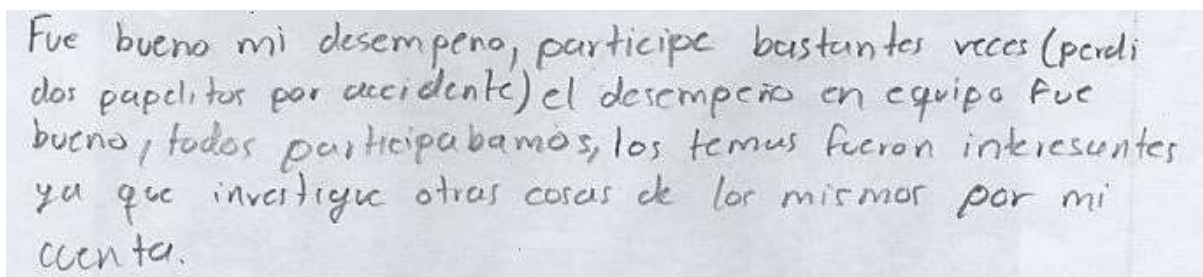 Fue bueno mi desempeno, participe bastantes veces (perdi
dos papelitos por accidente) el desempeño en equipo fue
bueno, todos participabamos, los temas fueron interesantes
ya que investigue otras cosas de los mismos por mi
cuenta.